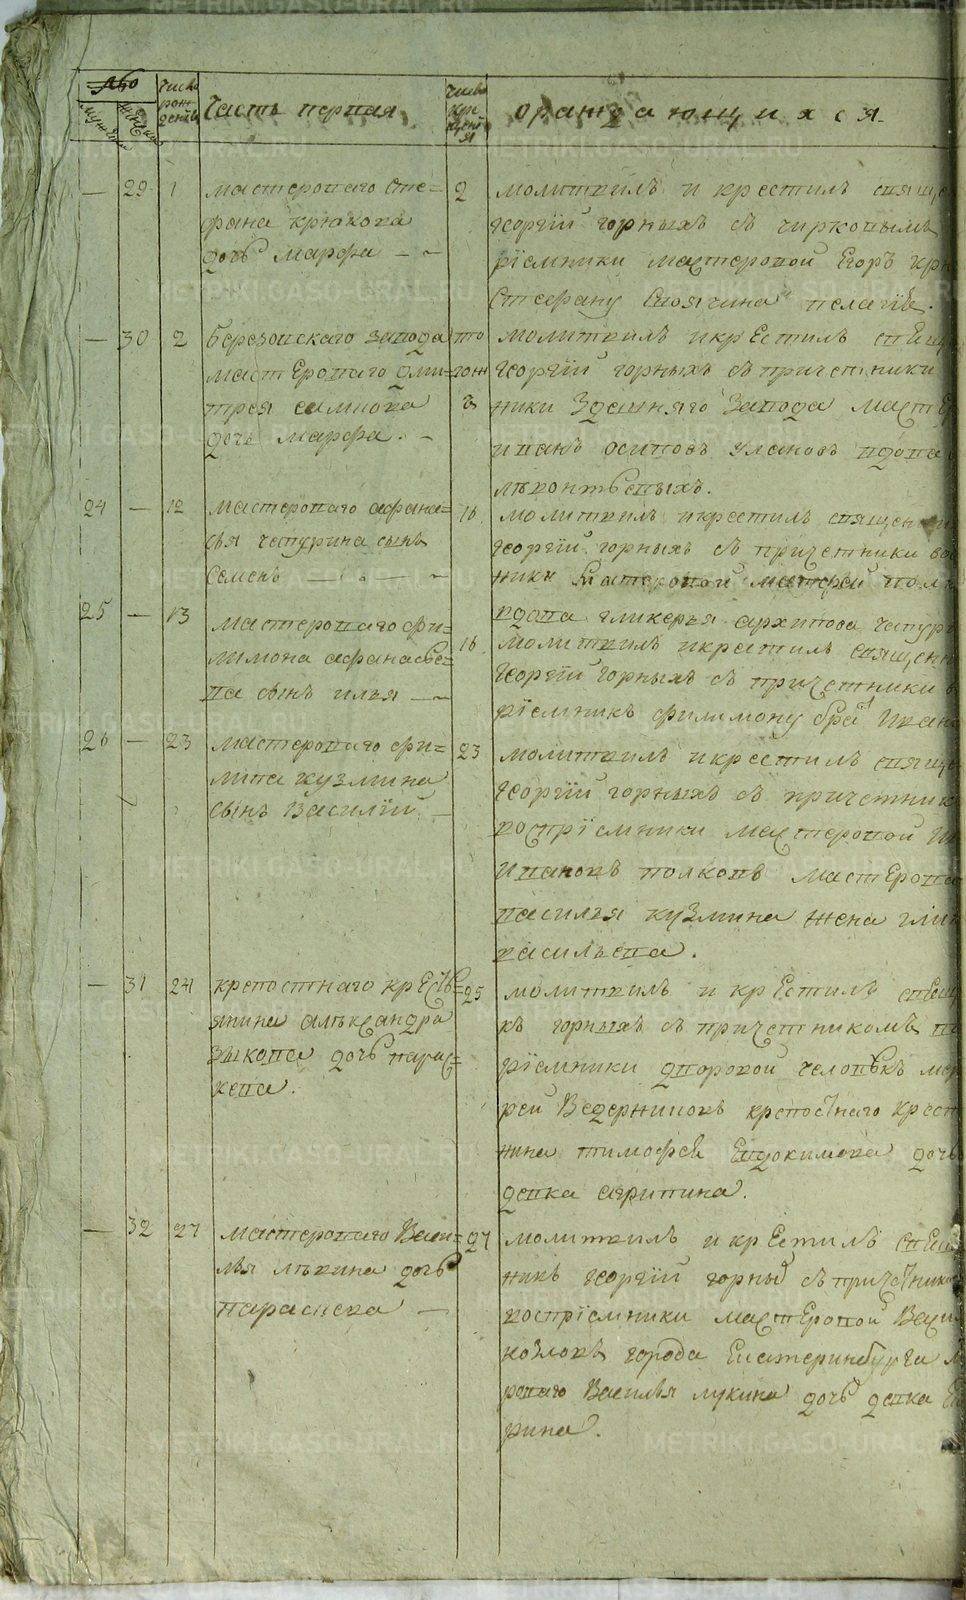 №
мужеска
женска
число рождения
Часть первая
число крещения
о раждающихся.
— 29 1 мастероваго Сте=
фана крюкова
дочь марфа — ~
2 молитвилъ и крестилъ свяще
георгїй горныхъ съ чирковымъ
рїемники мастеровой Егоръ крю
Стефану Своячина пелагїя.
— 30 2 березовскаго завода
мастероваго дми=
трея
дочь марфа. ~
того ж
молитвилъ и крестилъ свящ
георгїй горныхъ съ причетники
ники здешняго завода масте
иванъ осиповъ улановъ вдова
лѣвонтьевыхъ.
24 — 12 мастероваго афана=
сья чепурина сынъ
Семенъ
16 молитвилъ и крестилъ священ
георгїй горныхъ съ причетники во
ники мастеровой
вдова гликерья архипова чепур
25 — 13 мастероваго фи=
лимона афанасье=
ва сынъ илья — ~
16 молитвилъ и крестилъ священн
георгїй горныхъ съ причетники в
рїемникъ филимону братъ Иван
26 — 23 мастероваго фи=
липа кузмина
сынъ Василїй —
23 молитвилъ и крестилъ свяще
георгїй горныхъ съ причетник
воспрїемники мастеровой
Ивановъ волковъ мастерова
василья кузмина жена гли
васильева.
— 31 24 крепостнаго кресть=
янина алѣксандра
зыкова дочь парас=
кева.
25 молитвилъ и крестилъ свящ
къ горныхъ съ причетникомъ
рїемники дворовой человѣкъ
рей Ведерниковъ крепостнаго крест
нина тимофея Евдокимова дочь
девка агрипина.
— 32 27 мастероваго Васи=
лья лѣкина дочь
параскева —
27 молитвилъ и крестилъ свящ
никъ георгїй горныхъ съ причетник
воспрїемники мастеровой Васи
козловъ города Екатеринбурга
роваго Василья лукина дочь девка
рина.
METRIKI.GASO-URAL.RU